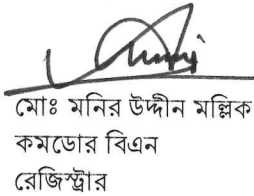 মোঃ মনির উদ্দীন মল্লিক
কমডোর বিএন
রেজিস্ট্রার